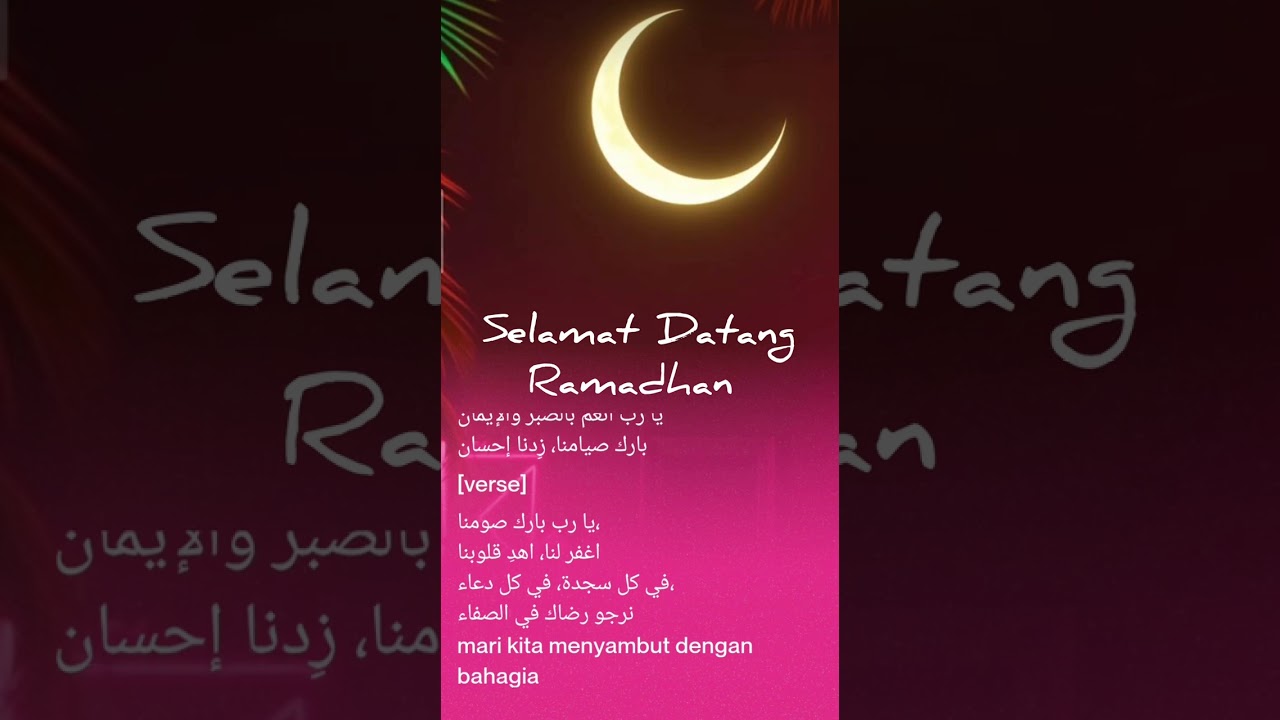 Selamat Datang
Ramadhan
يا رب أنعم بالصبر والإيمان
بارك صيامنا، زِدنا إحسان
[verse]
يا رب بارك صومنا،
اغفر لنا، اهدِ قلوبنا
في كل سجدة، في كل دعاء،
نرجو رضاك في الصفاء
mari kita menyambut dengan
bahagia